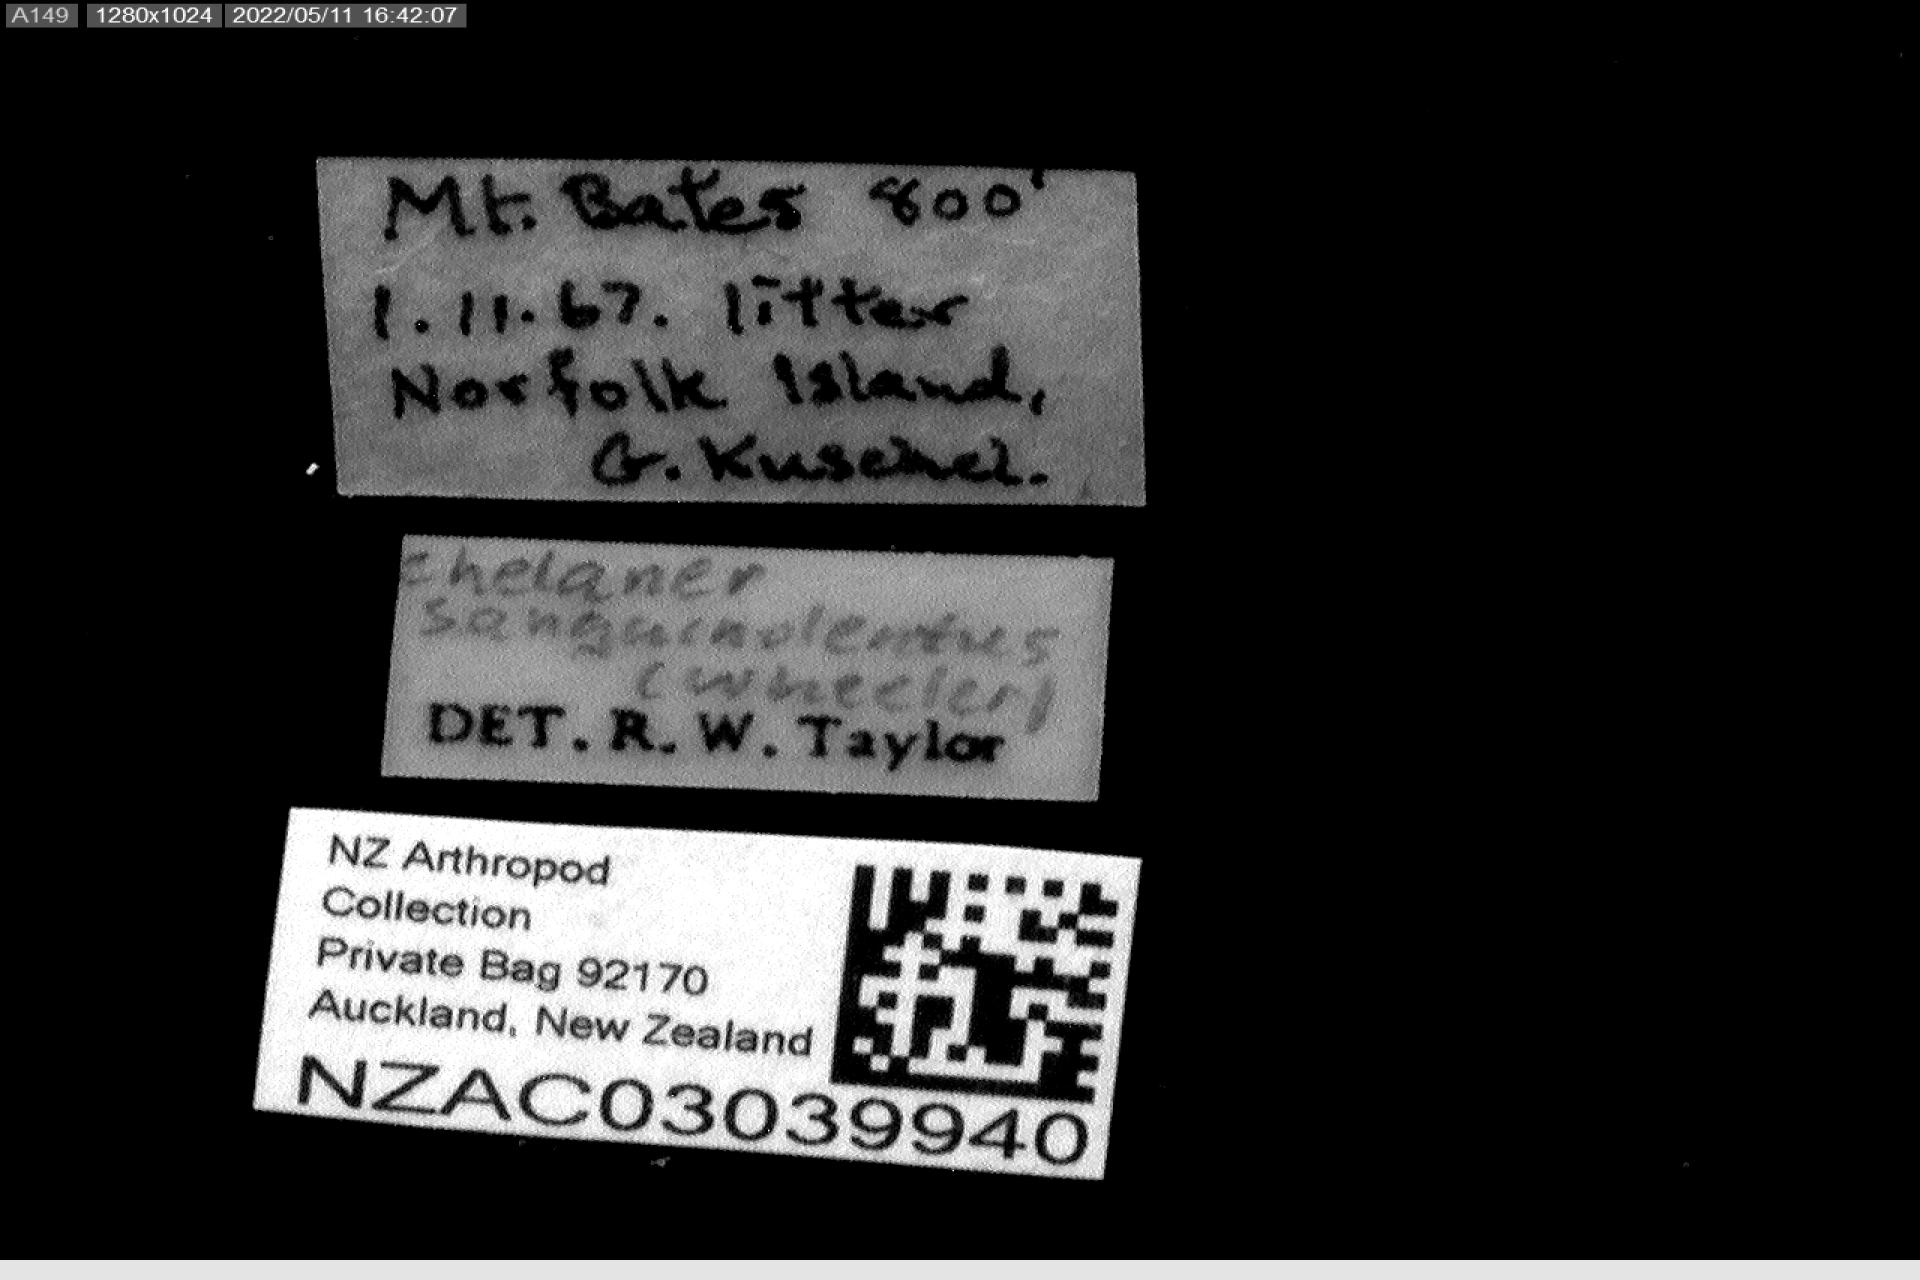 A149 1280x1024 2022/05/11 16:42:07
Mt. Bates 800'
1.11.67. litter
Norfolk Island,
G. Kuschel.
chelaner
sanguinolentus
(wheeler)
DET. R. W. Taylor
NZ Arthropod
Collection
Private Bag 92170
Auckland, New Zealand
NZAC03039940